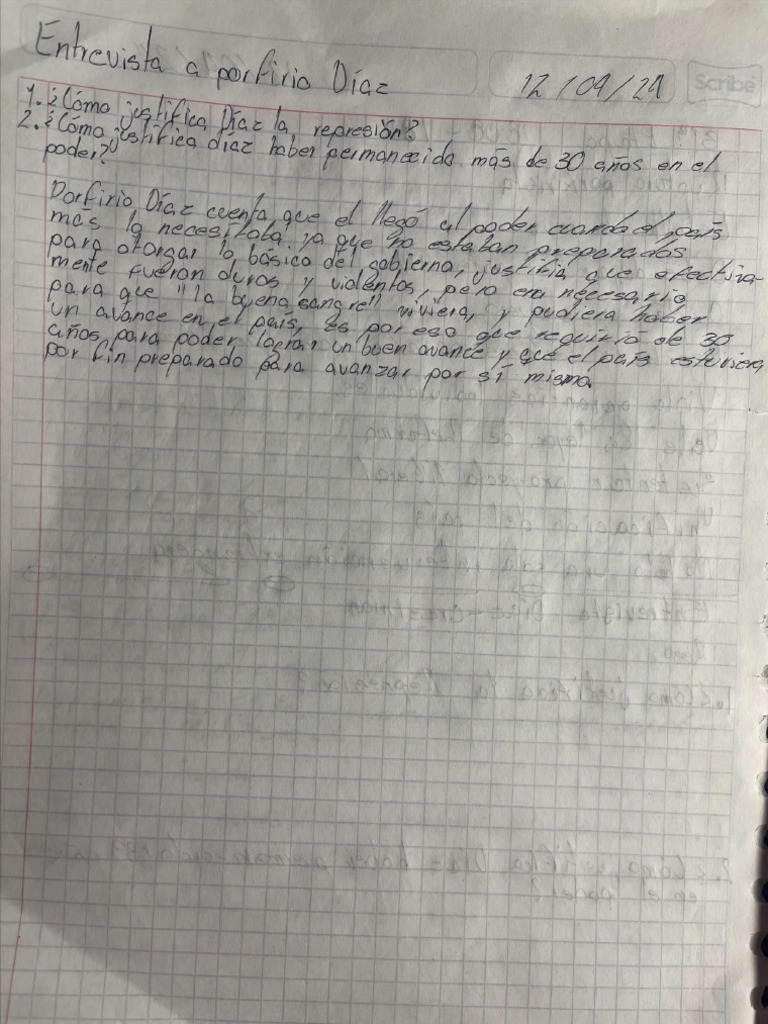 Entrevista a porfirio Díaz
12/09/24
Scribe
1. ¿Cómo justifica Díaz la represión?
2. ¿Cómo justifica díaz haber permanecido más de 30 años en el
poder?
Porfirio Díaz cuenta que el llegó al poder cuando el país
más lo necesitaba ya que no estaban preparados
para otorgar lo básico del gobierno, justifia que efectiva-
mente fueron duros y violentos, pero era necesario
para que "la buena sangre" viviera, y pudiera haber
un avance en el país, es por eso que requirió de 30
años para poder lograr un buen avance y que el país estuviera
por fin preparado para avanzar por sí mismo.